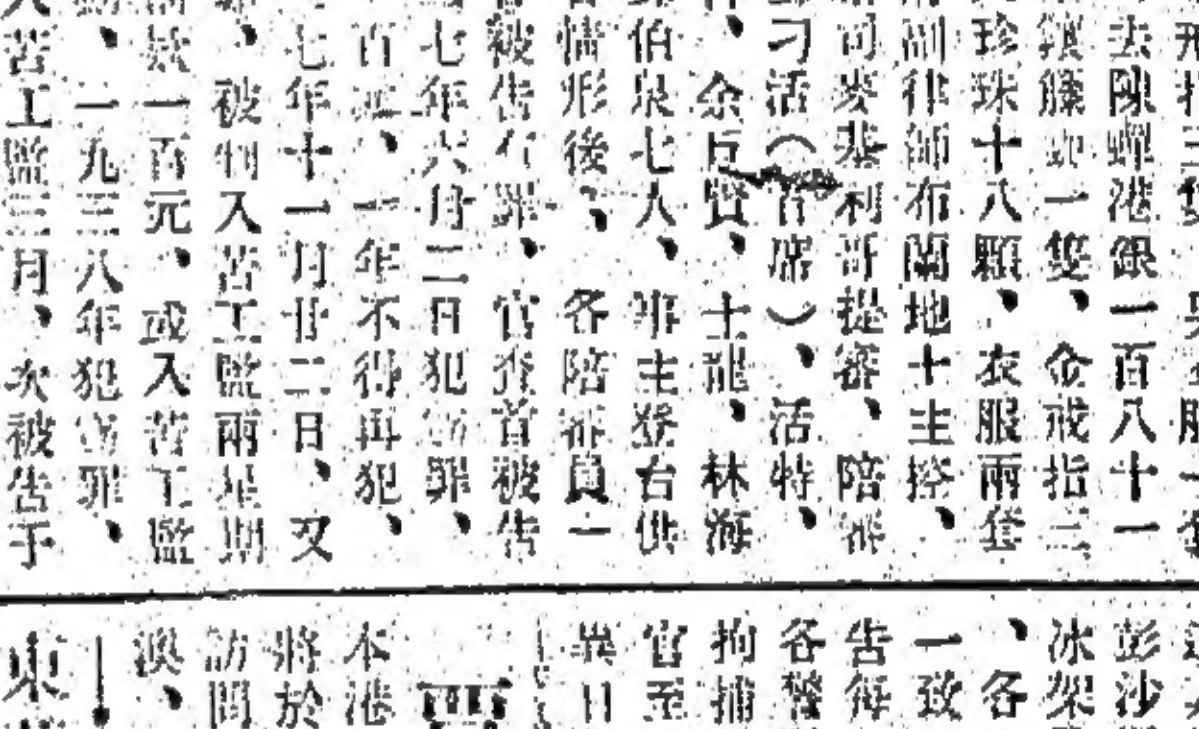 去陳蟬港銀一百八十一
鏈條 一雙、金戒指三
珍珠十八顆、衣服兩套
副律師布蘭地士主控、
司麥基利哥提審、陪審
刁活（首席）、活特、
、余巨賢、士龍、林海
伯泉七人、事主登台供
情形後、各陪審員一
被告有罪、官查首被告
七年六月二日犯竊罪、
百 、一年不得再犯、
七年十一月廿二日、又
、被判入苦工監兩星期
款一百元、或入苦工監
、一九三八年犯竊罪、
苦工監三月、次被告于
彭沙
冰架
、各
一致
告每
各警
拘捕
官至
異日
本港
將於
訪問
澳、
東